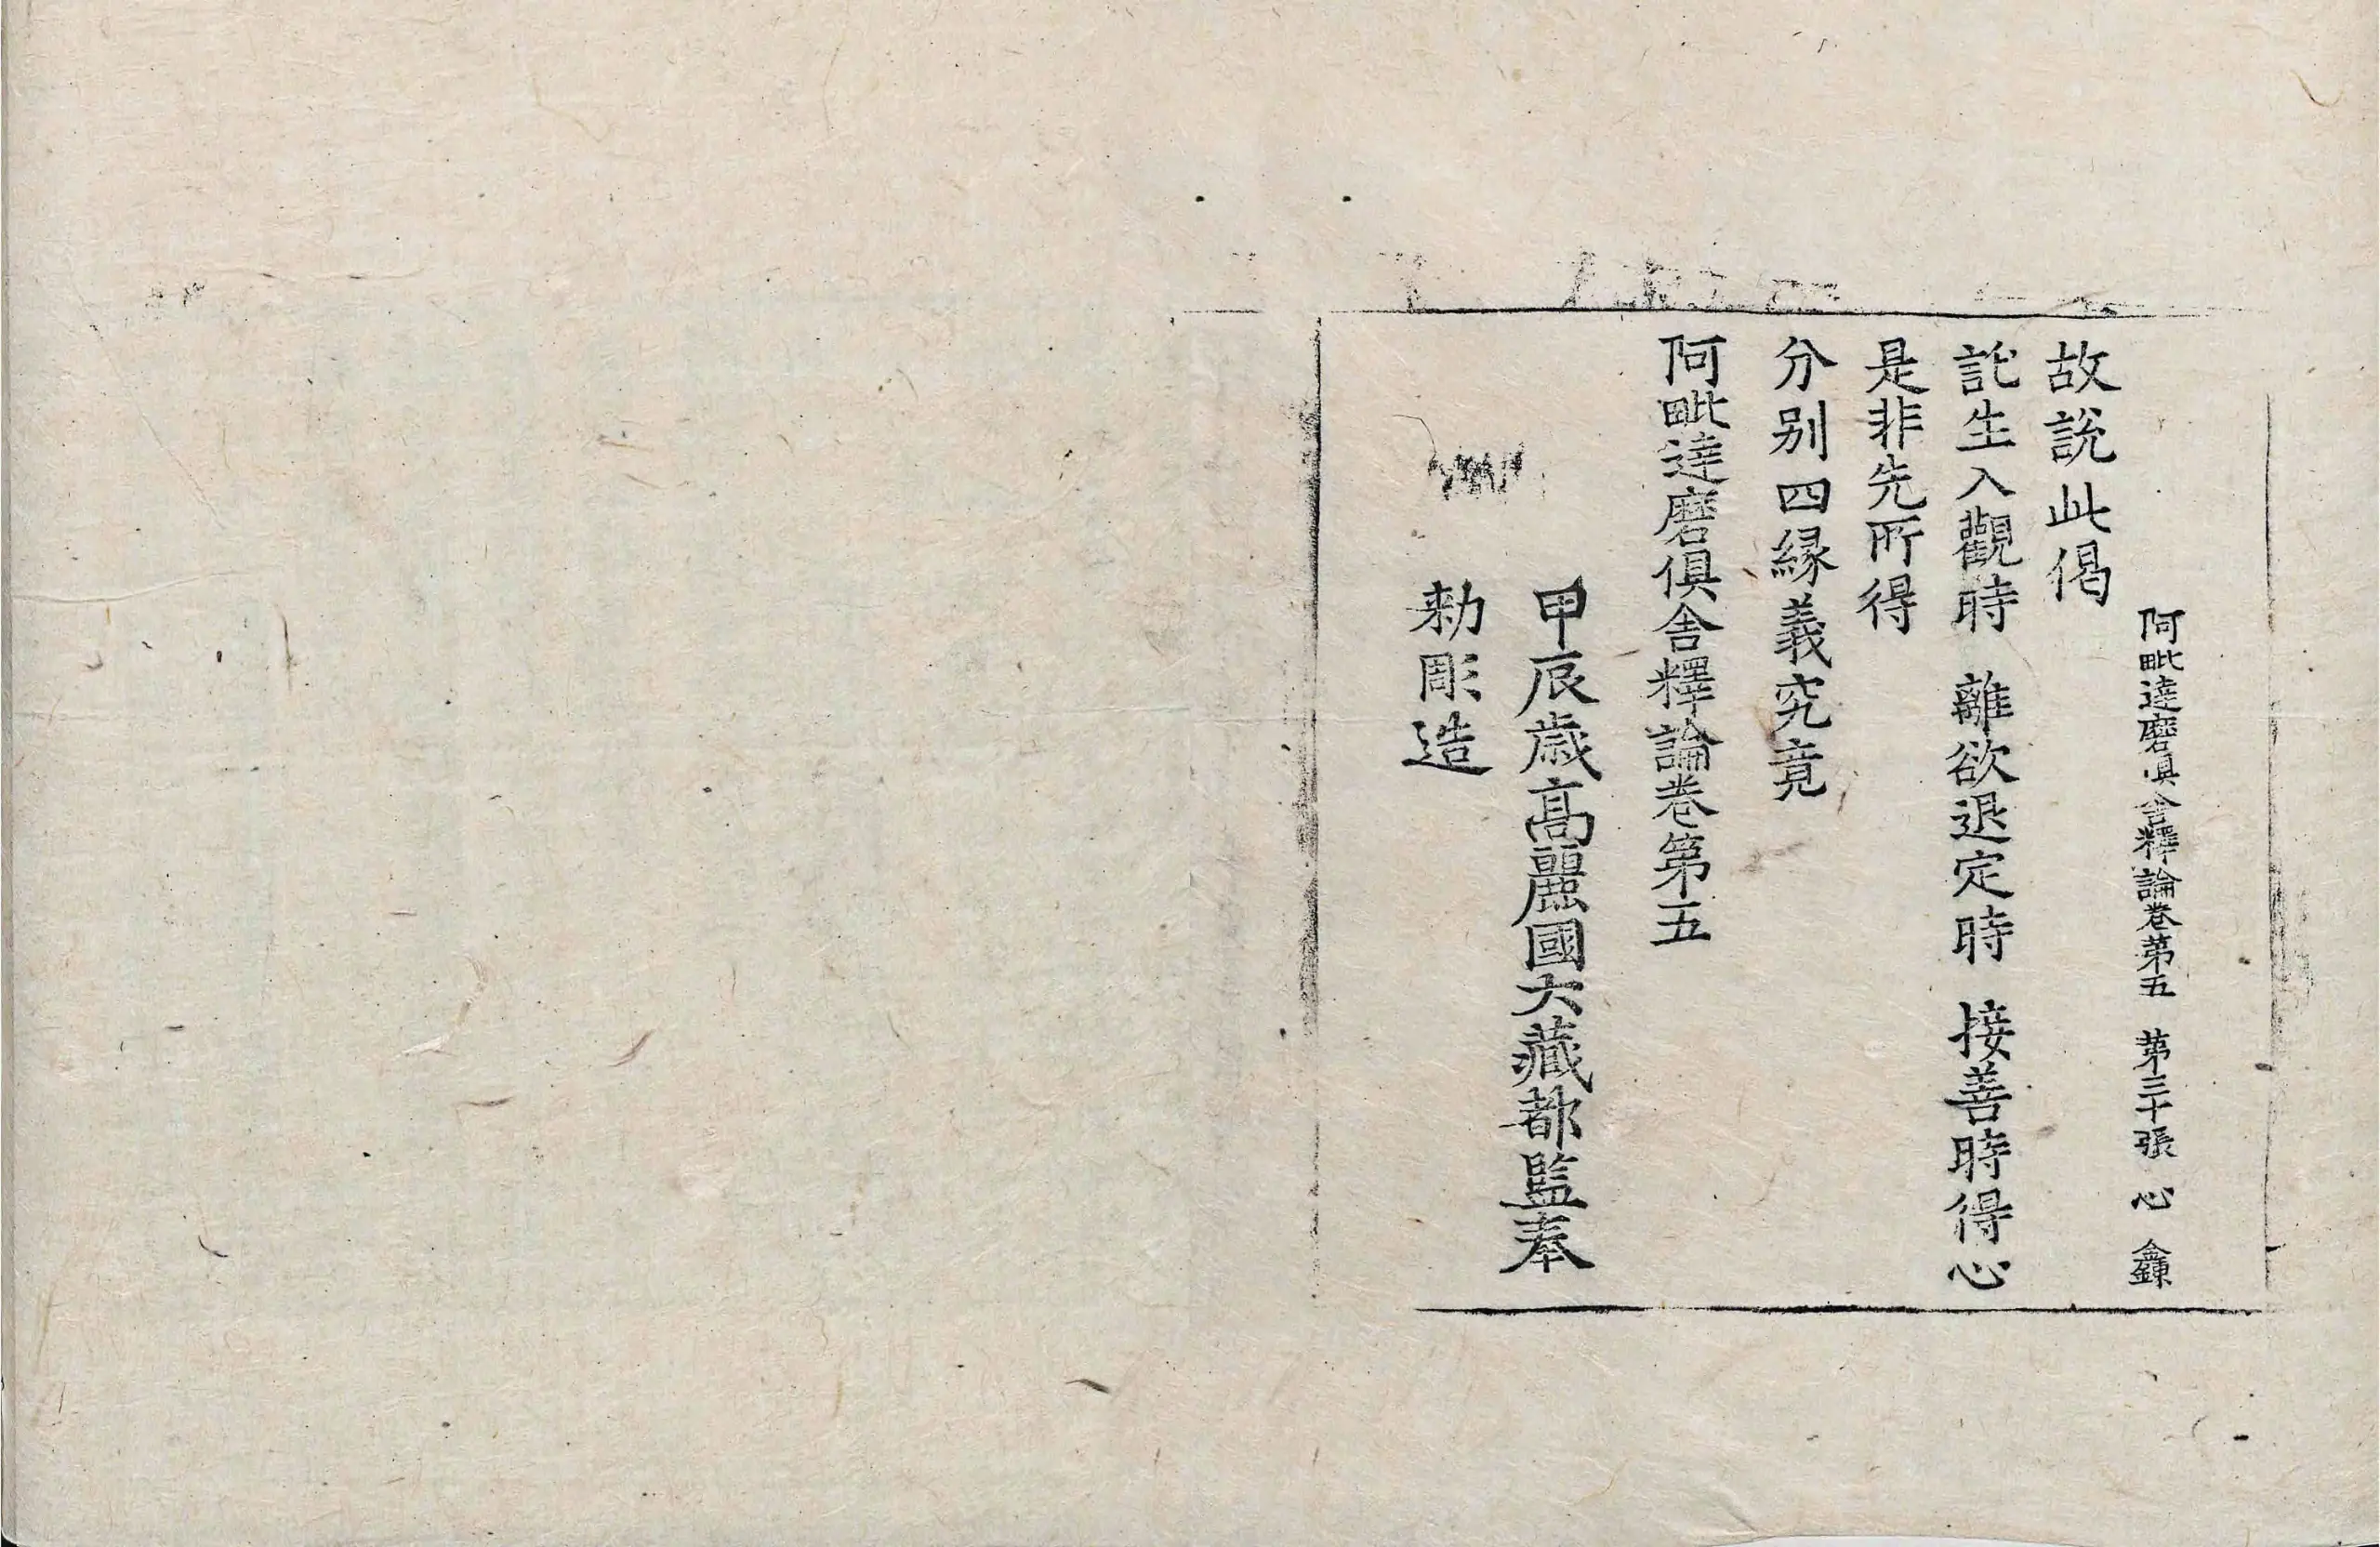 阿毗達磨俱舍釋論卷第五 第三十張 心
故說此偈
託生入觀時 離欲退定時 接善時得心
是非先所得
分別四緣義究竟
阿毗達磨俱舍釋論卷第五
甲辰歲高麗國大藏都監奉
勅彫造